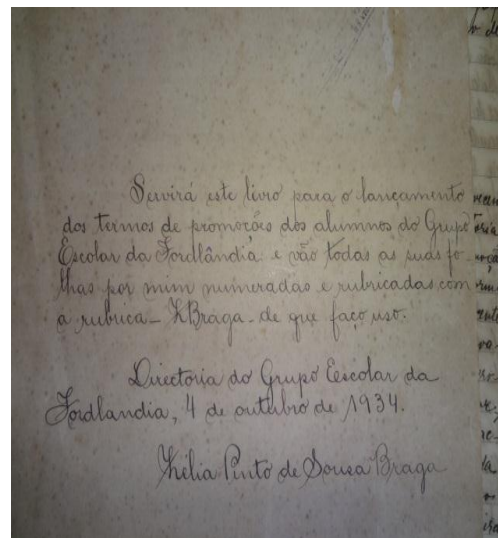 Servirá este livro para o lançamento
dos termos de promoções dos alumnos do Grupo
Escolar da Fordlândia e vão todas as suas fo
lhas por mim numeradas e rubricadas com
a rubrica - ZBraga - de que faço uso.
Directoria do Grupo Escolar da
Fordlandia, 4 de outubro de 1934.
Zelia Pinto de Sousa Braga